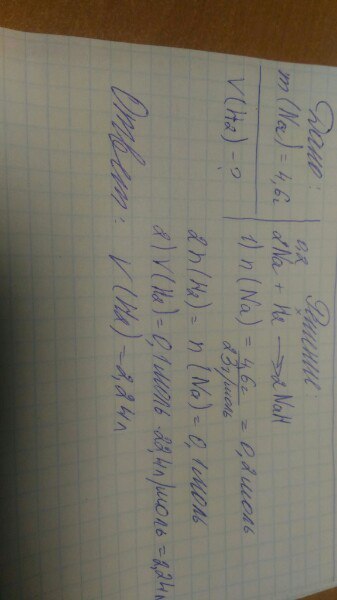 Дано:
m(Na) = 4,6г
V(H2) - ?
Решение:
0,2
2Na + H2 → 2NaH
1) n(Na) = 4,6г / 23г/моль = 0,2моль
2n(H2) = n(Na) = 0,1моль
2) V(H2) = 0,1моль · 22,4л/моль = 2,24л
Ответ: V(H2) - 2,24л